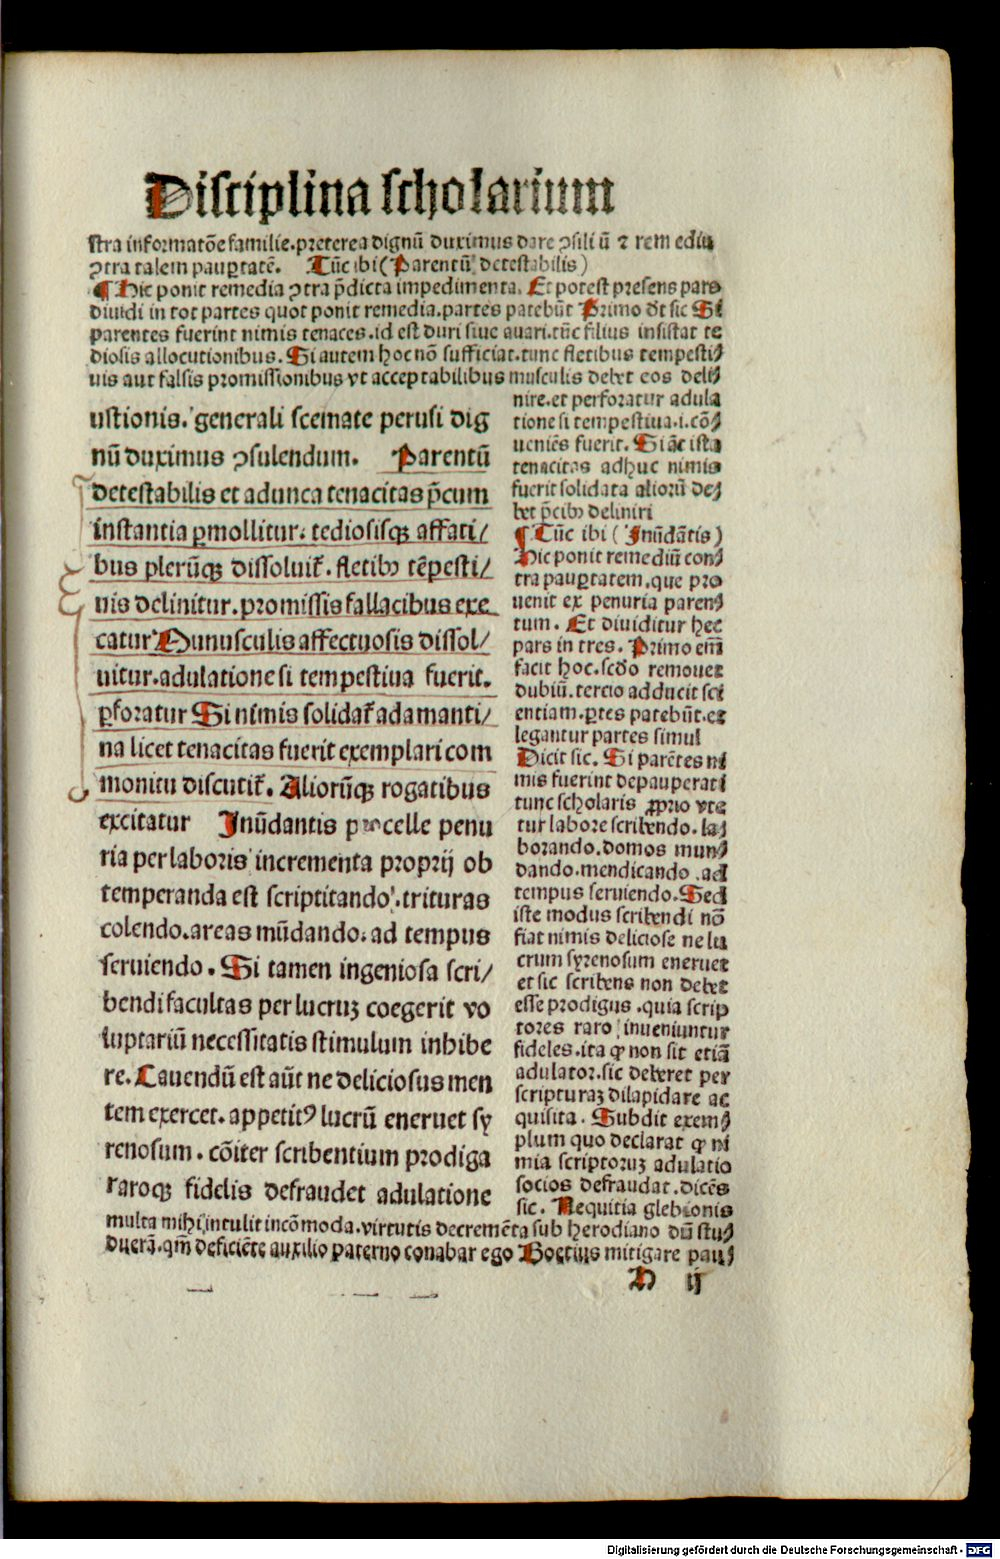 Disciplina scholarium
stra informatōe familie.preterea dignū duximus dare ꝯsiliū ⁊ remediū
ꝯtra talem paupertatē. Tūc ibi (Parentū detestabilis)
¶ Hic ponit remedia ꝯtra p̄dicta impedimenta. Et potest presens pars
diuidi in tot partes quot ponit remedia.partes patebūt Primo dt̄ sic Si
parentes fuerint nimis tenaces.id est duri siue auari.tūc filius insistat te
diosis allocutionibus. Si autem hoc nō sufficiat.tunc fletibus tempesti/
uis aut falsis promissionibus vt acceptabilibus musculis debet eos deli/
ustionis. generali scemate perusi dig
nū duximus ꝯsulendum. Parentū
detestabilis et adunca tenacitas p̄cum
instantia ꝑmollitur. tediosisqꝫ affati/
bus plerūqꝫ dissoluit᷑. fletibꝰ tēpesti/
uis delinitur.promissis fallacibus exe
catur Munusculis affectuosis dissol/
uitur.adulatione si tempestiua fuerit.
ꝑforatur Si nimis solidat᷑ adamanti/
na licet tenacitas fuerit exemplari com
monitu discutit᷑. Aliorūqꝫ rogatibus
excitatur Inūdantis procelle penu
ria per laboris incrementa proprij ob
temperanda est scriptitando.trituras
colendo.areas mūdando.ad tempus
seruiendo. Si tamen ingeniosa scri/
bendi facultas per lucruꝫ coegerit vo
luptariū necessitatis stimulum inhibe
re. Cauendū est aūt ne deliciosus men
tem exercet.appetitꝰ lucrū eneruet sy
renosum. cōiter scribentium prodiga
raroqꝫ fidelis defraudet adulatione
nire.et perforatur adula
tione si tempestiua.i.cō/
ueniēs fuerit. Si āt ista
tenacitas adhuc nimis
fuerit solidata aliorū de/
bet p̄cibꝰ deliniri
¶ Tūc ibi (Inūdātis)
Hic ponit remediū con/
tra paupertatem.que pro
uenit ex penuria paren/
tum. Et diuiditur hec
pars in tres. Primo em̄
facit hoc.scd̄o remouet
dubiū.tercio adducit sci
entiam.ꝑtes patebūt.et
legantur partes simul
Dicit sic. Si parētes ni
mis fuerint depauperati
tunc scholaris ꝓprio vta
tur labore scribendo.la/
borando.domos mun/
dando.mendicando .ad
tempus seruiendo.Sed
iste modus scribendi nō
fiat nimis deliciose ne lu
crum syrenosum eneruet
et sic scribens non debet
esse prodigus .quia scrip
tores raro inueniuntur
fideles.ita ꝙ non sit etiā
adulator.sic deberet per
scripturaꝫ dilapidare ac
quisita. Subdit exem/
plum quo declarat ꝙ ni
mia scriptoruꝫ adulatio
socios defraudat.dicēs
sic. Nequitia glebionis
multa mihi intulit incōmoda.virtutis decremēta sub herodiano dū stu/
duerā.qm̄ deficiēte auxilio paterno conabar ego Boetius mitigare pau/
D ij
Digitalisierung gefördert durch die Deutsche Forschungsgemeinschaft - DFG